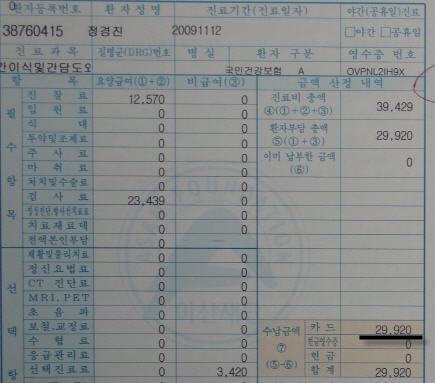 환자등록번호 환 자 성 명 진료기간(진료일자) 야간(공휴일)진료
38760415 정경진 20091112 □야간 □공휴일
진 료 과 목 질병군(DRG)번호 병 실 환 자 구 분 영수증 번호
간이식및간담도외 국민건강보험 A OVPNL2IH9X
항 목 요양급여(①+②) 비급여(③) 금액 산정 내역
필 수 항 목
진 찰 료 12,570 0 진료비 총액 ④(①+②+③) 39,429
입 원 료 0 0
식 대 0 0 환자부담 총액 ⑤(①+③) 29,920
투약및조제료 0 0
주 사 료 0 0 이미 납부한 금액 (⑥) 0
마 취 료 0 0
처치및수술료 0 0
검 사 료 23,439 0
영상진단,방사선치료료 0 0
치료재료대 0 0
전액본인부담 0
선 택 항
재활및물리치료 0 0
정신요법료 0 0
CT 진단료 0 0
MRI,PET 0 0
초 음 파 0 0
보철,교정료 0 0 수납금액 ⑦ (⑤-⑥) 카 드 29,920
수 혈 료 0 0 현금영수증 0
응급관리료 0 0 현 금 0
선택진료료 3,420 합 계 29,920
0 0
ASAN FOUNDATION
아산재